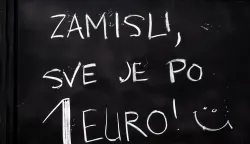 ZAMISLI,
SVE JE PO
1 EURO!